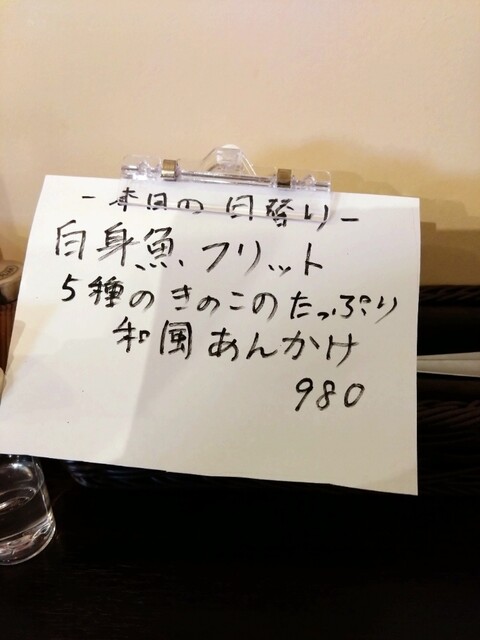 -本日の日替り-
白身魚フリット
5種のきのこのたっぷり
和風あんかけ
980